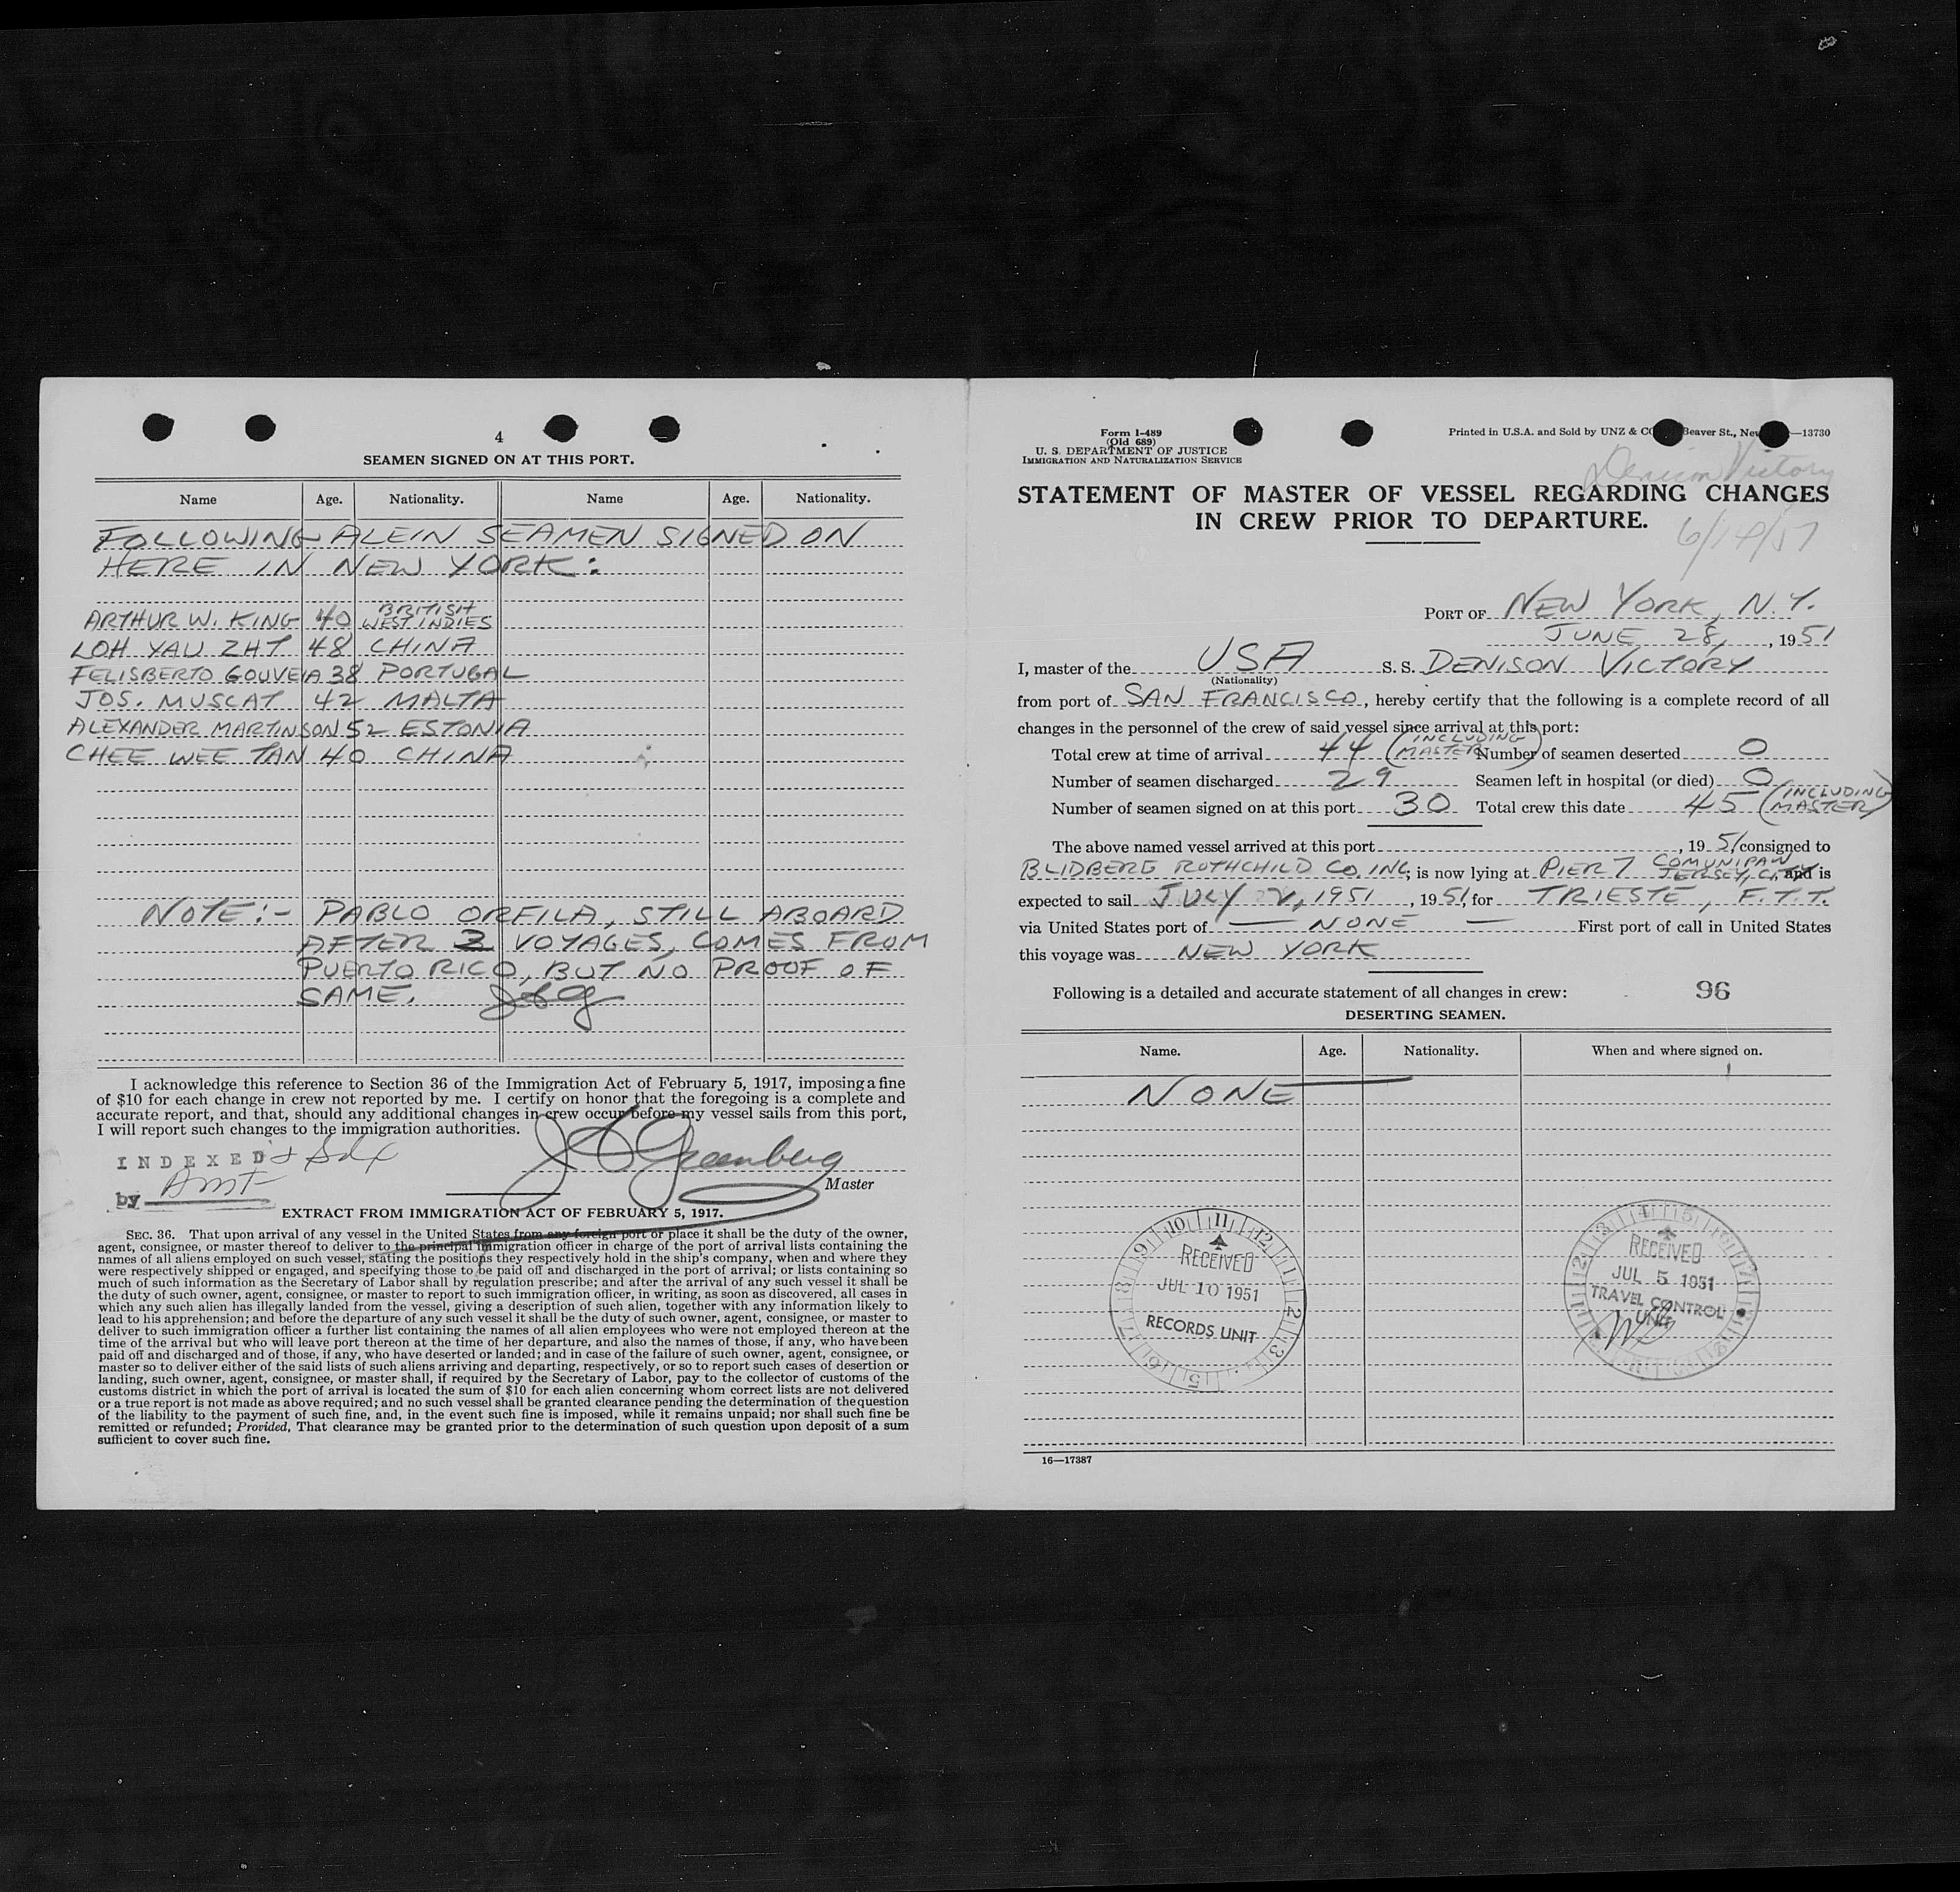 4
SEAMEN SIGNED ON AT THIS PORT.
Name Age. Nationality. Name Age. Nationality.
FOLLOWING ALEIN SEAMEN SIGNED ON
HERE IN NEW YORK:
ARTHUR W. KING 40 BRITISH WEST INDIES
LOH YAU ZHT 48 CHINA
FELISBERTO GOUVEIA 38 PORTUGAL
JOS. MUSCAT 42 MALTA
ALEXANDER MARTINSON 52 ESTONIA
CHEE WEE TAN 40 CHINA
NOTE:- PABLO ORFILA, STILL ABOARD
AFTER 2 VOYAGES, COMES FROM
PUERTO RICO, BUT NO PROOF OF
SAME.
I acknowledge this reference to Section 36 of the Immigration Act of February 5, 1917, imposing a fine
of $10 for each change in crew not reported by me. I certify on honor that the foregoing is a complete and
accurate report, and that, should any additional changes in crew occur before my vessel sails from this port,
I will report such changes to the immigration authorities.
INDEXED
J Greenberg
by
Master
EXTRACT FROM IMMIGRATION ACT OF FEBRUARY 5, 1917.
SEC. 36. That upon arrival of any vessel in the United States from any foreign port or place it shall be the duty of the owner,
agent, consignee, or master thereof to deliver to the principal immigration officer in charge of the port of arrival lists containing the
names of all aliens employed on such vessel, stating the positions they respectively hold in the ship's company, when and where they
were respectively shipped or engaged, and specifying those to be paid off and discharged in the port of arrival; or lists containing so
much of such information as the Secretary of Labor shall by regulation prescribe; and after the arrival of any such vessel it shall be
the duty of such owner, agent, consignee, or master to report to such immigration officer, in writing, as soon as discovered, all cases in
which any such alien has illegally landed from the vessel, giving a description of such alien, together with any information likely to
lead to his apprehension; and before the departure of any such vessel it shall be the duty of such owner, agent, consignee, or master to
deliver to such immigration officer a further list containing the names of all alien employees who were not employed thereon at the
time of the arrival but who will leave port thereon at the time of her departure, and also the names of those, if any, who have been
paid off and discharged and of those, if any, who have deserted or landed; and in case of the failure of such owner, agent, consignee, or
master so to deliver either of the said lists of such aliens arriving and departing, respectively, or so to report such cases of desertion or
landing, such owner, agent, consignee, or master shall, if required by the Secretary of Labor, pay to the collector of customs of the
customs district in which the port of arrival is located the sum of $10 for each alien concerning whom correct lists are not delivered
or a true report is not made as above required; and no such vessel shall be granted clearance pending the determination of the question
of the liability to the payment of such fine, and, in the event such fine is imposed, while it remains unpaid; nor shall such fine be
remitted or refunded; Provided, That clearance may be granted prior to the determination of such question upon deposit of a sum
sufficient to cover such fine.
Form I-489
(Old 689)
U. S. DEPARTMENT OF JUSTICE
IMMIGRATION AND NATURALIZATION SERVICE
Printed in U.S.A. and Sold by UNZ & CO Beaver St., New —13730
Denison Victory
STATEMENT OF MASTER OF VESSEL REGARDING CHANGES
IN CREW PRIOR TO DEPARTURE.
PORT OF NEW YORK, N.Y.
JUNE 28, , 1951
I, master of the USA S. S. DENISON VICTORY
(Nationality)
from port of SAN FRANCISCO, hereby certify that the following is a complete record of all
changes in the personnel of the crew of said vessel since arrival at this port:
Total crew at time of arrival 44 (INCLUDING MASTER) Number of seamen deserted 0
Number of seamen discharged 29 Seamen left in hospital (or died) 0
Number of seamen signed on at this port 30 Total crew this date 45 (INCLUDING MASTER)
The above named vessel arrived at this port , 1951 consigned to
BLIDBERG ROTHCHILD CO. INC; is now lying at PIER 7 COMUNIPAW JERSEY, C, and is
expected to sail JULY 2, 1951 , 1951, for TRIESTE, F.T.T.
via United States port of — NONE — First port of call in United States
this voyage was NEW YORK
Following is a detailed and accurate statement of all changes in crew: 96
DESERTING SEAMEN.
Name. Age. Nationality. When and where signed on.
NONE
RECEIVED
JUL 10 1951
RECORDS UNIT
RECEIVED
JUL 5 1951
TRAVEL CONTROL
UNIT
16—17387